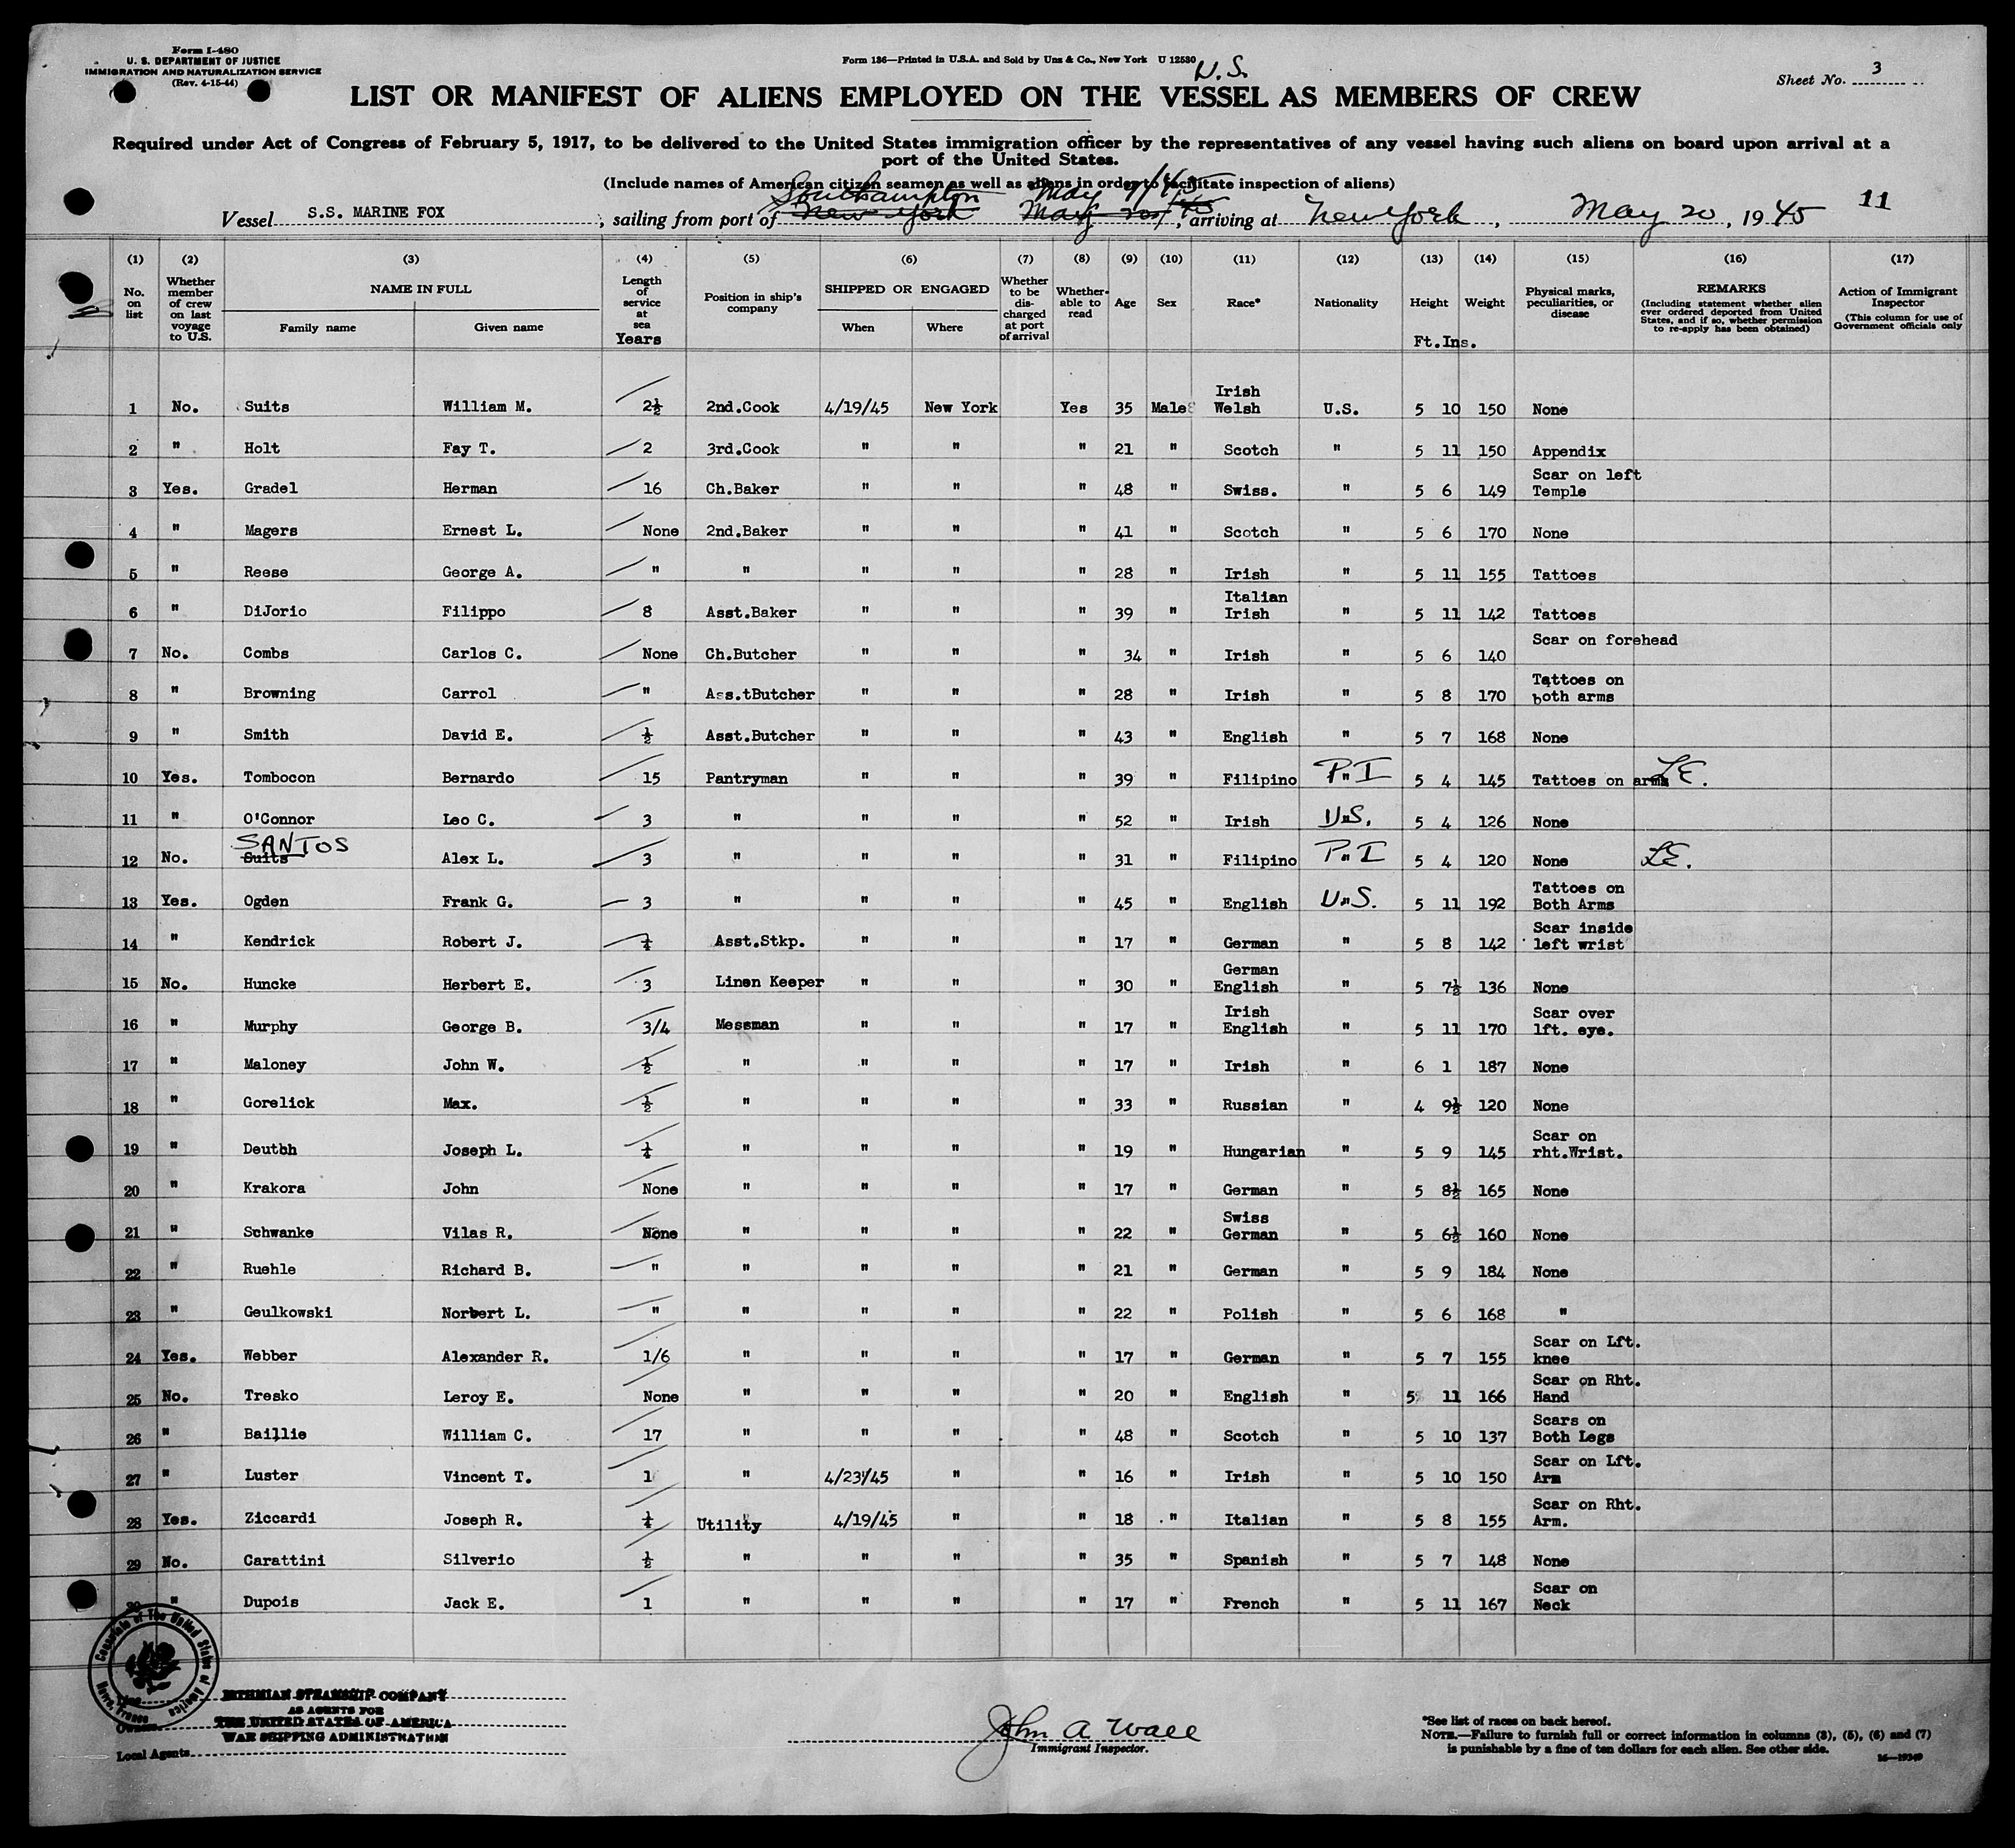 Form I-480
U. S. DEPARTMENT OF JUSTICE
IMMIGRATION AND NATURALIZATION SERVICE
(Rev. 4-15-44)
Form 136—Printed in U.S.A. and Sold by Unz & Co., New York U 12530
U.S.
Sheet No. 3
LIST OR MANIFEST OF ALIENS EMPLOYED ON THE VESSEL AS MEMBERS OF CREW
Required under Act of Congress of February 5, 1917, to be delivered to the United States immigration officer by the representatives of any vessel having such aliens on board upon arrival at a
port of the United States.
(Include names of American citizen seamen as well as aliens in order to facilitate inspection of aliens)
Southampton May 9/45
11
Vessel S.S. MARINE FOX, sailing from port of New York May 20/45, arriving at New York, May 20, 1945
(1) (2) (3) (4) (5) (6) (7) (8) (9) (10) (11) (12) (13) (14) (15) (16) (17)
No. on list
Whether member of crew on last voyage to U.S.
NAME IN FULL
Family name
Given name
Length of service at sea
Years
Position in ship's company
SHIPPED OR ENGAGED
When
Where
Whether to be discharged at port of arrival
Whether able to read
Age
Sex
Race*
Nationality
Height
Ft.Ins.
Weight
Physical marks, peculiarities, or disease
REMARKS
(Including statement whether alien ever ordered deported from United States, and if so, whether permission to re-apply has been obtained)
Action of Immigrant Inspector
(This column for use of Government officials only
1 No. Suits William M. 2½ 2nd.Cook 4/19/45 New York Yes 35 Male Irish Welsh U.S. 5 10 150 None
2 " Holt Fay T. 2 3rd.Cook " " " 21 " Scotch " 5 11 150 Appendix
3 Yes. Gradel Herman 16 Ch.Baker " " " 48 " Swiss. " 5 6 149 Scar on left Temple
4 " Magers Ernest L. None 2nd.Baker " " " 41 " Scotch " 5 6 170 None
5 " Reese George A. " " " " " 28 " Irish " 5 11 155 Tattoes
6 " DiJorio Filippo 8 Asst.Baker " " " 39 " Italian Irish " 5 11 142 Tattoes
7 No. Combs Carlos C. None Ch.Butcher " " " 34 " Irish " 5 6 140 Scar on forehead
8 " Browning Carrol " Ass.tButcher " " " 28 " Irish " 5 8 170 Tattoes on both arms
9 " Smith David E. ½ Asst.Butcher " " " 43 " English " 5 7 168 None
10 Yes. Tombocon Bernardo 15 Pantryman " " " 39 " Filipino P.I 5 4 145 Tattoes on arms LE.
11 " O'Connor Leo C. 3 " " " " 52 " Irish U.S. 5 4 126 None
12 No. SANTOS Suits Alex L. 3 " " " " 31 " Filipino P.I 5 4 120 None LE.
13 Yes. Ogden Frank G. 3 " " " " 45 " English U.S. 5 11 192 Tattoes on Both Arms
14 " Kendrick Robert J. ¼ Asst.Stkp. " " " 17 " German " 5 8 142 Scar inside left wrist
15 No. Huncke Herbert E. 3 Linen Keeper " " " 30 " German English " 5 7½ 136 None
16 " Murphy George B. 3/4 Messman " " " 17 " Irish English " 5 11 170 Scar over lft. eye.
17 " Maloney John W. ½ " " " " 17 " Irish " 6 1 187 None
18 " Gorelick Max. ½ " " " " 33 " Russian " 4 9½ 120 None
19 " Joseph L. ¼ " " " " 19 " Hungarian " 5 9 145 Scar on rht.Wrist.
20 " Krakora John None " " " " 17 " German " 5 8½ 165 None
21 " Schwanke Vilas R. None " " " " 22 " Swiss German " 5 6½ 160 None
22 " Ruehle Richard B. " " " " " 21 " German " 5 9 184 None
23 " Geulkowski Norbert L. " " " " " 22 " Polish " 5 6 168 "
24 Yes. Webber Alexander R. 1/6 " " " " 17 " German " 5 7 155 Scar on Lft. knee
25 No. Tresko Leroy E. None " " " " 20 " English " 5 11 166 Scar on Rht. Hand
26 " Baillie William C. 17 " " " " 48 " Scotch " 5 10 137 Scars on Both Legs
27 " Luster Vincent T. 1 " 4/23/45 " " 16 " Irish " 5 10 150 Scar on Lft. Arm
28 Yes. Ziccardi Joseph R. ¼ Utility 4/19/45 " " 18 " Italian " 5 8 155 Scar on Rht. Arm.
29 No. Carattini Silverio ½ " " " " 35 " Spanish " 5 7 148 None
30 " Dupois Jack E. 1 " " " " 17 " French " 5 11 167 Scar on Neck
Consulate of The United States of America
Havre, France
Line
Owners
ISTHMIAN STEAMSHIP COMPANY
AS AGENTS FOR
THE UNITED STATES OF AMERICA
WAR SHIPPING ADMINISTRATION
Local Agents
John A Wall
Immigrant Inspector.
*See list of races on back hereof.
NOTE.—Failure to furnish full or correct information in columns (3), (5), (6) and (7)
is punishable by a fine of ten dollars for each alien. See other side.
16—19349